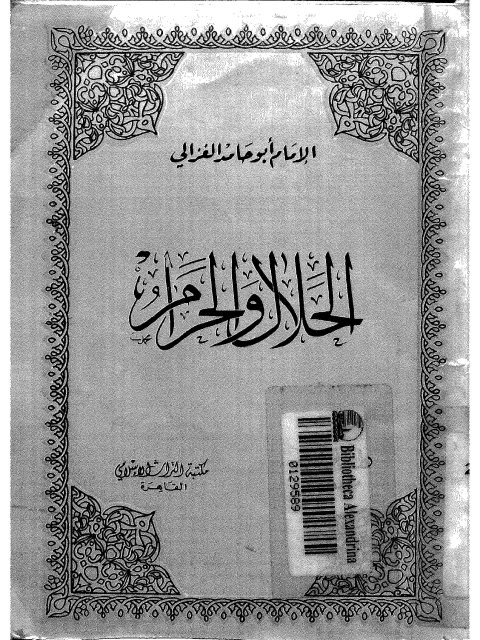 الإمام أبو حامد الغزالي
الحلال والحرام
مكتبة التراث الإسلامي
القاهرة
Bibliotheca Alexandrina
0129589